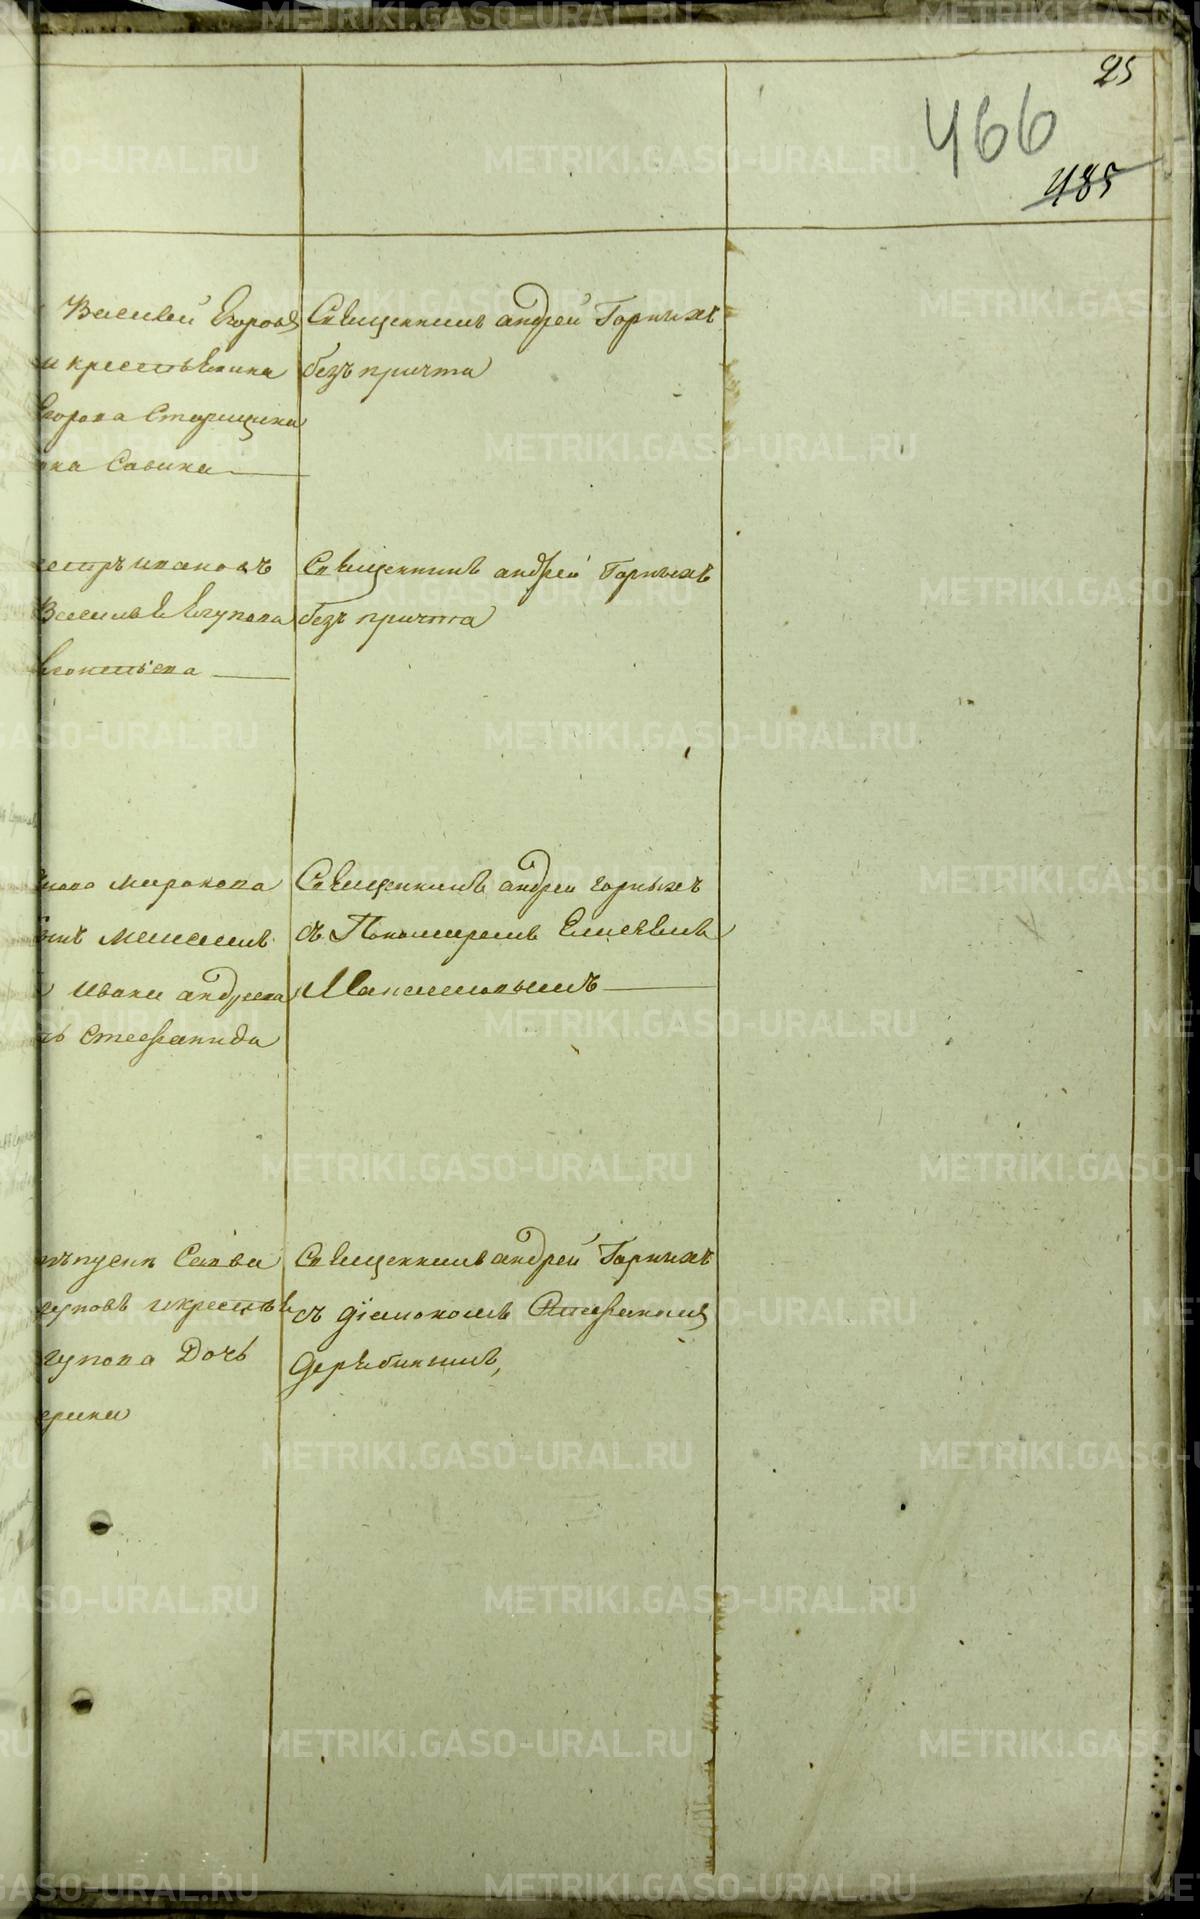 25
466
485
Василей Егоровъ
и крестьянина
Егорова Старицына
Савина
Священникъ андрей Горныхъ
безъ причта
ивановъ
Василья Ягупова
Леонтьева
Священникъ андрей Горныхъ
безъ причта
Миронова
Максимъ
Ивана андреева
Стефанида
Священникъ андрей горныхъ
съ Пономаремъ Елисеемъ
Максимовымъ
Савва
и крестья
гупова Дочь
ерина
Священникъ андрей Горныхъ
съ діакономъ Стефаномъ
Дерябинымъ,
METRIKI.GASO-URAL.RU